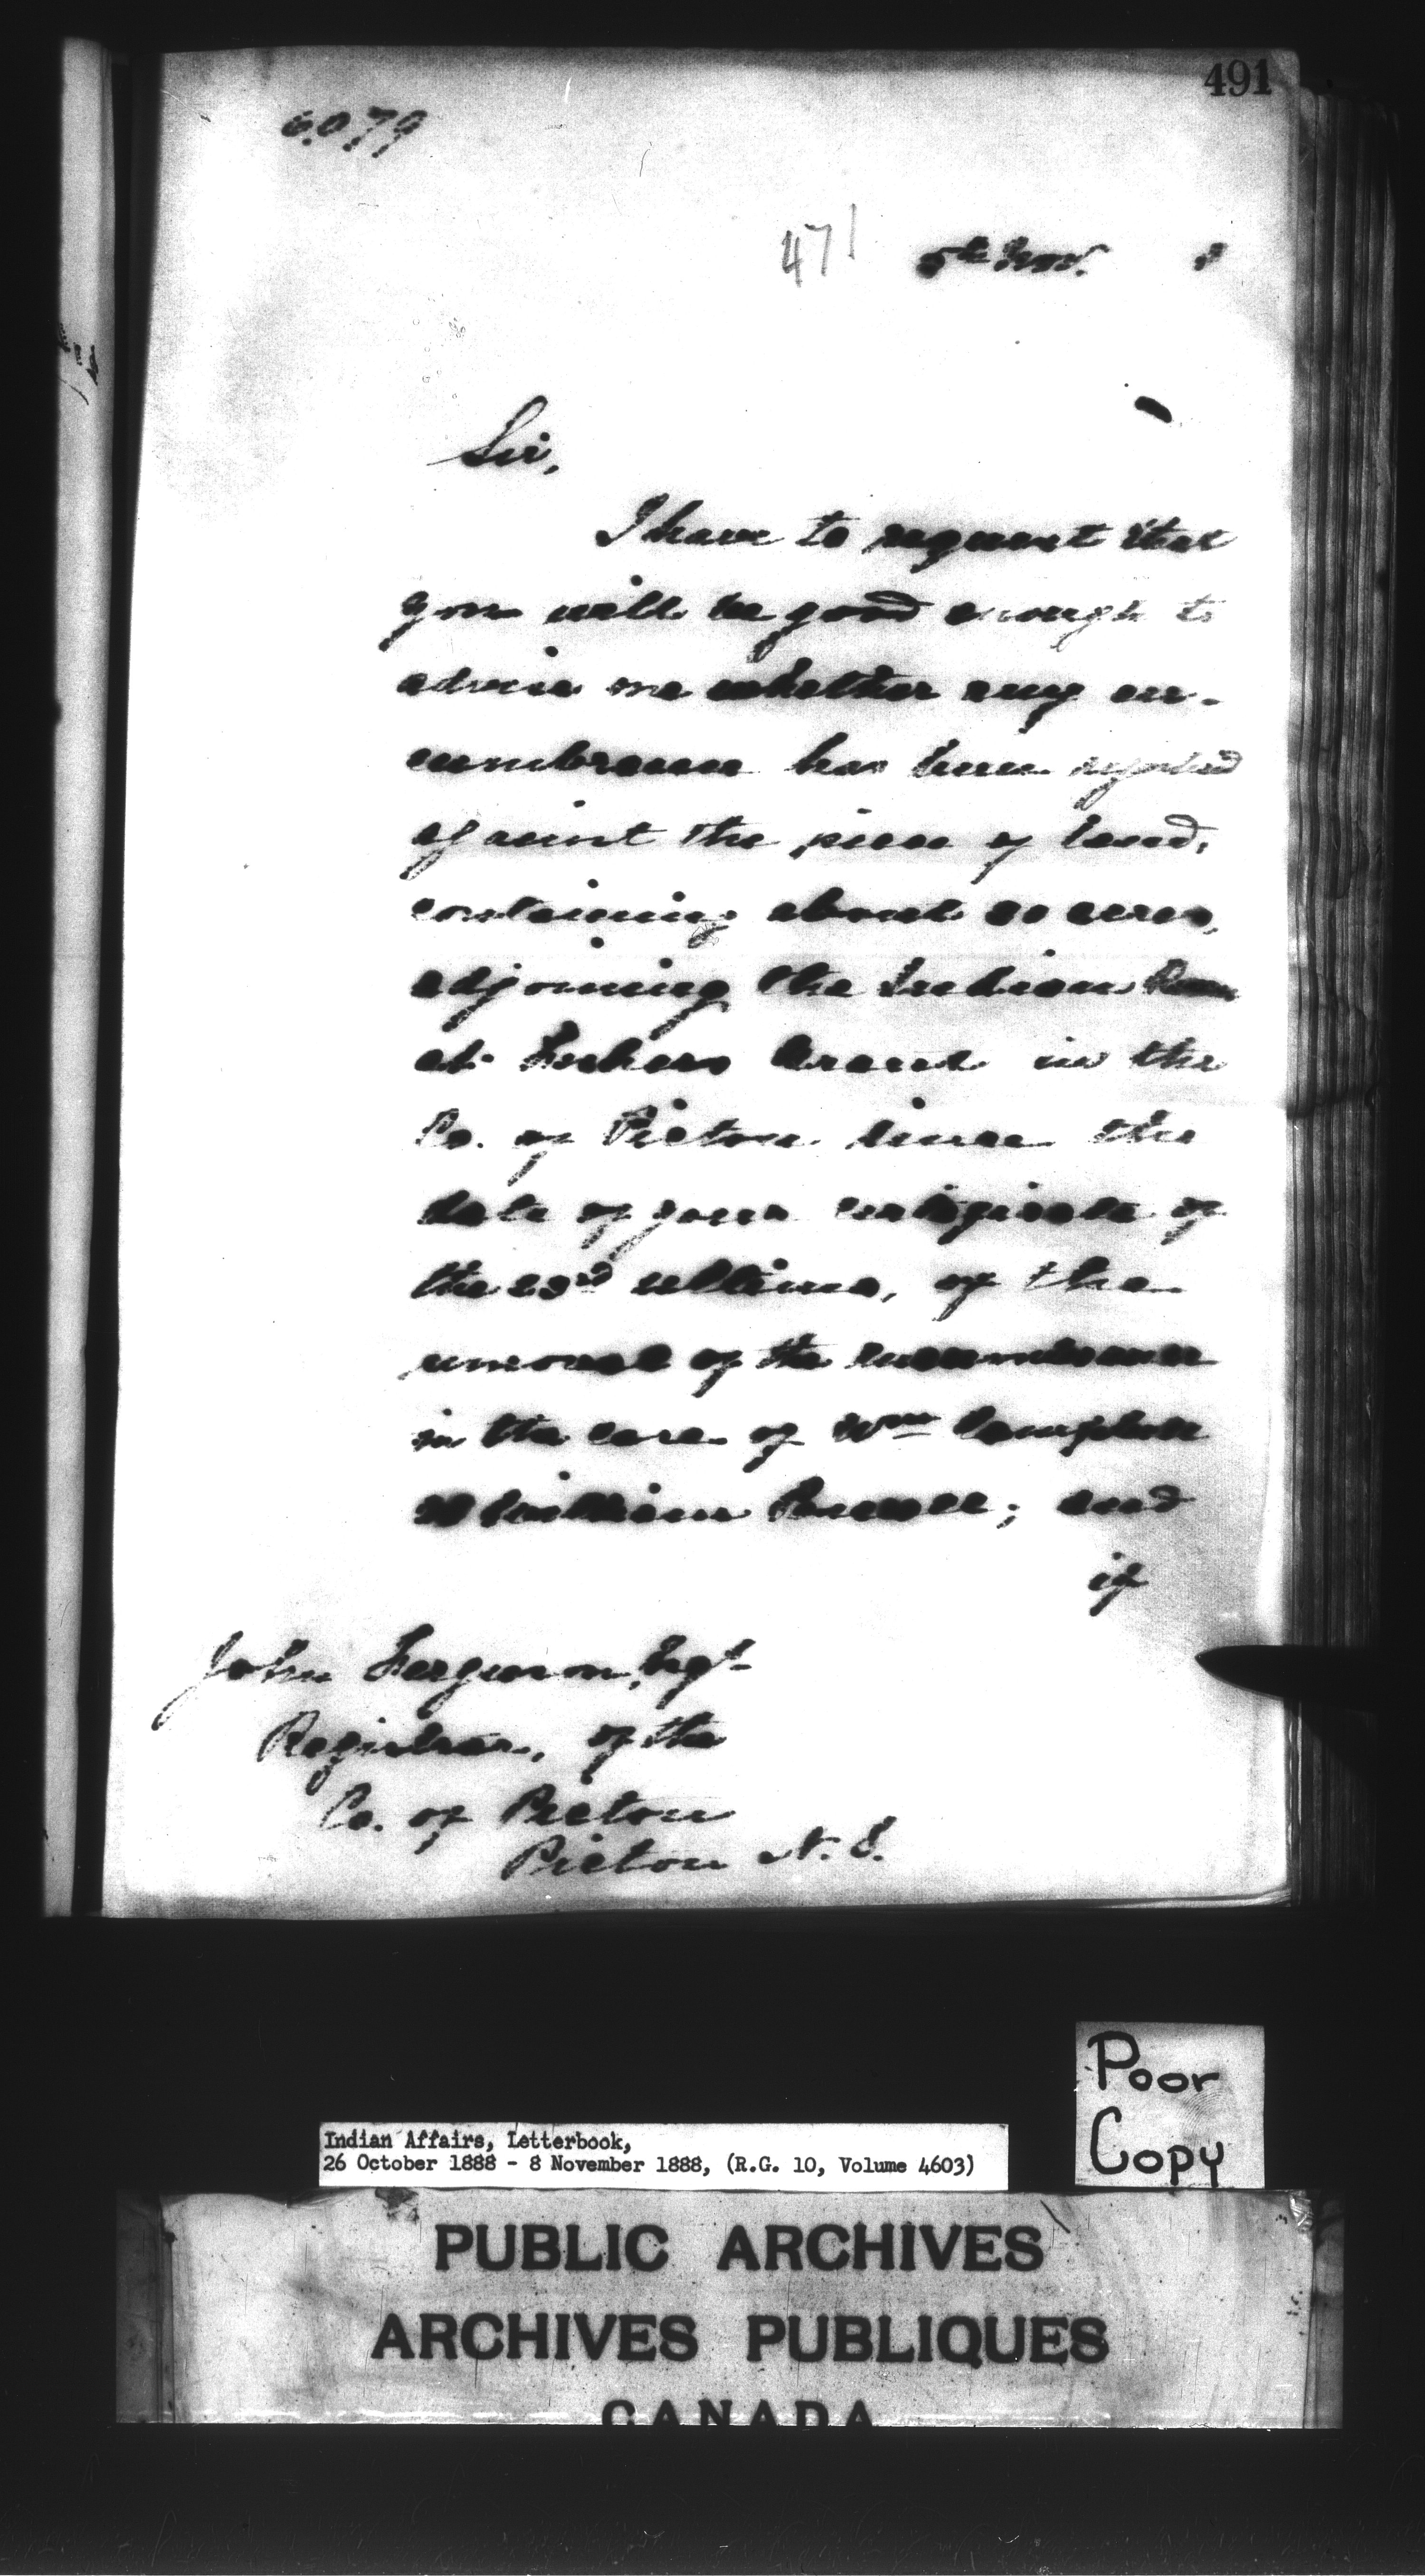 491
6079
471
5th Nov. 8
Sir,
I have to request that
you will be good enough to
advise me whether any en-
cumbrance has been registered
against the piece of land,
containing about acres,
adjoining the Indian
at Fishers Grant in the
Co. of Pictou since the
date of your certificate of
the 23rd ultimo, of the
removal of the encumbrance
in the case of Wm Campbell
; and
if
John Ferguson, Esqr
Registrar, of the
Co. of Pictou
Pictou N.S.
Poor
Copy
Indian Affairs, Letterbook,
26 October 1888 - 8 November 1888, (R.G. 10, Volume 4603)
PUBLIC ARCHIVES
ARCHIVES PUBLIQUES
CANADA